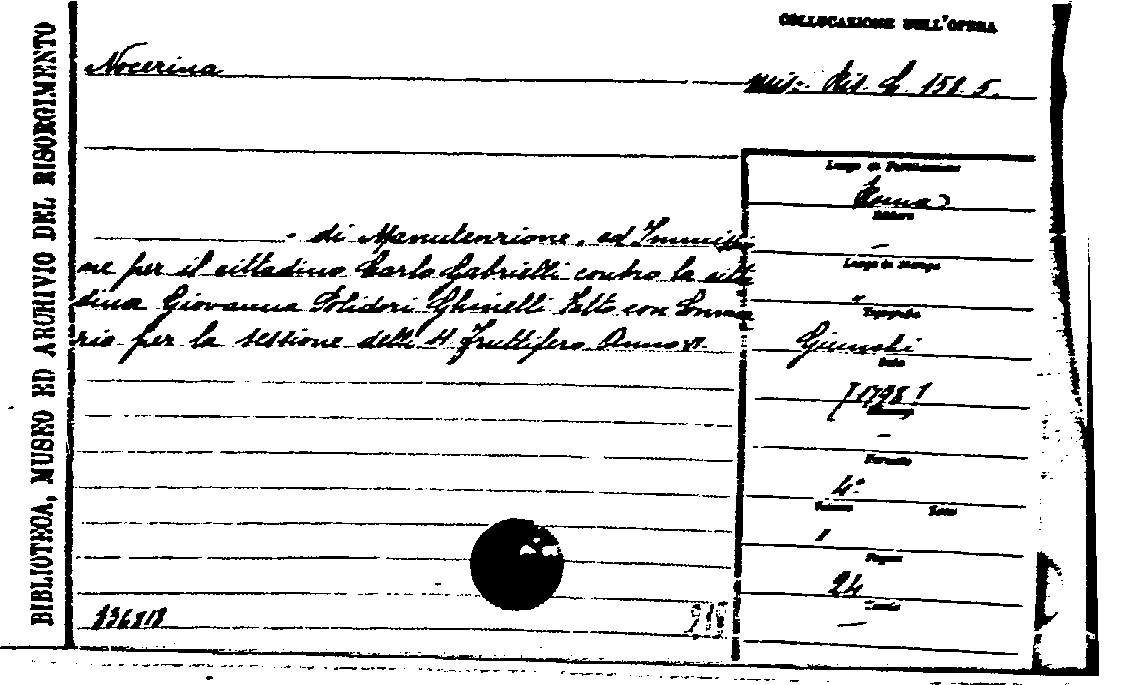 BIBLIOTECA, MUSEO ED ARCHIVIO DEL RISORGIMENTO
COLLOCAZIONE DELL'OPERA
Nocerina
Mis. Ris. 158. 5.
- di Manutenzione, ed Immissio
ne per il cittadino Carlo Gabrielli contro la citt
dina Giovanna Polidori Ghinelli Fatto con Somma
rio per la sessione delli 4 fruttifero Anno VI.
Luogo di Pubblicazione
Roma
Editore
–
Luogo di Stampa
"
Tipografo
Giunchi
Data
[1798]
–
Formato
4°
Volume
1
Pagine
24
Tavole
—